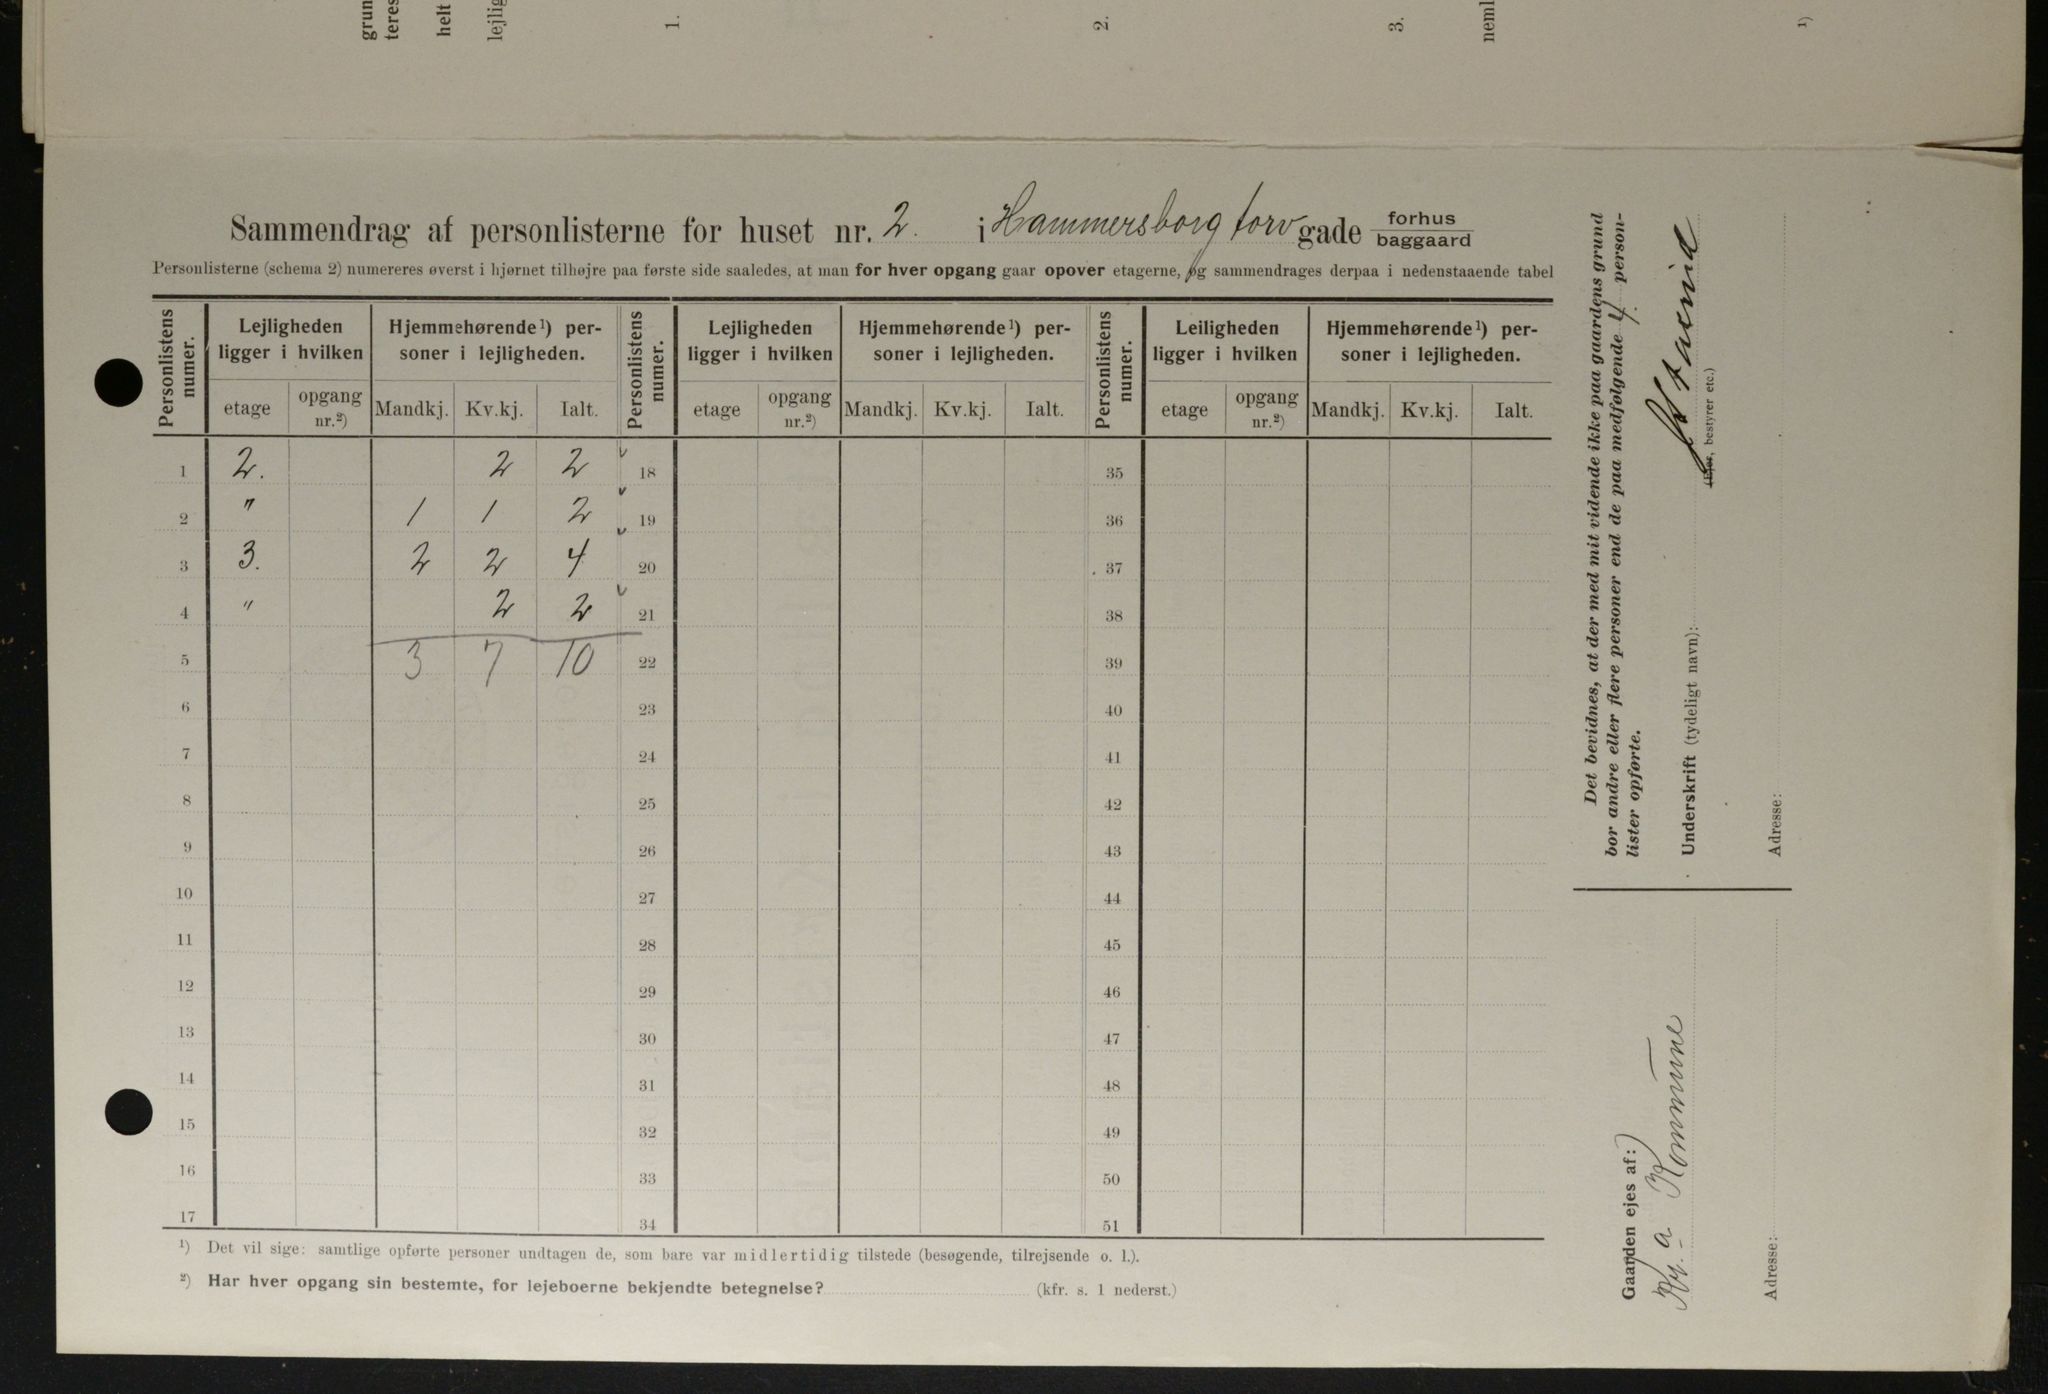 grun
teres
helt
lejlig
1.
2.
3.
neml
1)
Sammendrag af personlisterne for huset nr. 2. i Hammersborg torv gade forhus
baggaard
Personlisterne (schema 2) numereres øverst i hjørnet tilhøjre paa første side saaledes, at man for hver opgang gaar opover etagerne, og sammendrages derpaa i nedenstaaende tabel
Personlistens numer. Lejligheden ligger i hvilken Hjemmehørende 1) personer i lejligheden. Personlistens numer. Lejligheden ligger i hvilken Hjemmehørende 1) personer i lejligheden. Personlistens numer. Leiligheden ligger i hvilken Hjemmehørende 1) personer i lejligheden.
etage opgang nr.2) Mandkj. Kv.kj. Ialt. etage opgang nr.2) Mandkj. Kv.kj. Ialt. etage opgang nr.2) Mandkj. Kv.kj. Ialt.
1 2. 2 2 18 35
2 " 1 1 2 19 36
3 3. 2 2 4 20 37
4 " 2 2 21 38
5 3 7 10 22 39
6 23 40
7 24 41
8 25 42
9 26 43
10 27 44
11 28 45
12 29 46
13 30 47
14 31 48
15 32 49
16 33 50
17 34 51
1) Det vil sige: samtlige opførte personer undtagen de, som bare var midlertidig tilstede (besøgende, tilrejsende o. l.).
2) Har hver opgang sin bestemte, for lejeboerne bekjendte betegnelse? (kfr. s. 1 nederst.)
Det bevidnes, at der med mit vidende ikke paa gaardens grund
bor andre eller flere personer end de paa medfølgende 4. person-
lister opførte.
Underskrift (tydeligt navn):
(Ejer, bestyrer etc.)
Adresse:
Gaarden ejes af:
Kr.a Kommune
Adresse: